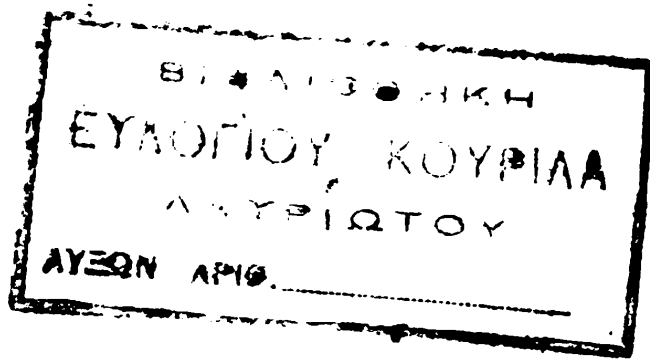 ΒΙΒΛΙΟΘΗΚΗ
ΕΥΛΟΓΙΟΥ ΚΟΥΡΙΛΑ
ΛΑΥΡΙΩΤΟΥ
ΑΥΞΩΝ ΑΡΙΘ.